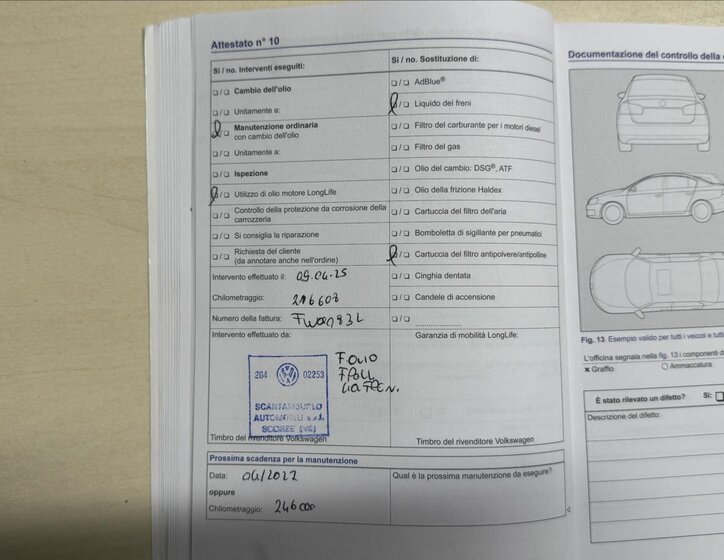 Attestato n° 10
Sì / no. Interventi eseguiti:
❑ / ❑ Cambio dell'olio
❑ / ❑ Unitamente a:
❑ / ❑ Manutenzione ordinaria
con cambio dell'olio
❑ / ❑ Unitamente a:
❑ / ❑ Ispezione
❑ / ❑ Utilizzo di olio motore LongLife
❑ / ❑ Controllo della protezione da corrosione della
carrozzeria
❑ / ❑ Si consiglia la riparazione
❑ / ❑ Richiesta del cliente
(da annotare anche nell'ordine)
Intervento effettuato il: 09.04.25
Chilometraggio: 216608
Numero della fattura:
Intervento effettuato da:
264 02253
SCANTAMBURLO
AUTOMOBILI s.r.l.
SCORZE' (VE)
Timbro del rivenditore Volkswagen
Sì / no. Sostituzione di:
❑ / ❑ AdBlue®
❑ / ❑ Liquido dei freni
❑ / ❑ Filtro del carburante per i motori diesel
❑ / ❑ Filtro del gas
❑ / ❑ Olio del cambio: DSG®, ATF
❑ / ❑ Olio della frizione Haldex
❑ / ❑ Cartuccia del filtro dell'aria
❑ / ❑ Bomboletta di sigillante per pneumatici
❑ / ❑ Cartuccia del filtro antipolvere/antipolline
❑ / ❑ Cinghia dentata
❑ / ❑ Candele di accensione
❑ / ❑ ....................
Garanzia di mobilità LongLife:
FOLIO
FPOLL
Timbro del rivenditore Volkswagen
Prossima scadenza per la manutenzione
Data: 04/2027
oppure
Chilometraggio: 246000
Qual è la prossima manutenzione da eseguire?
Documentazione del controllo della
Fig. 13 Esempio valido per tutti i veicoli e tutti
L'officina segnala nella fig. 13 i componenti d
× Graffio ○ Ammaccatura
È stato rilevato un difetto? Sì: ❑
Descrizione del difetto: